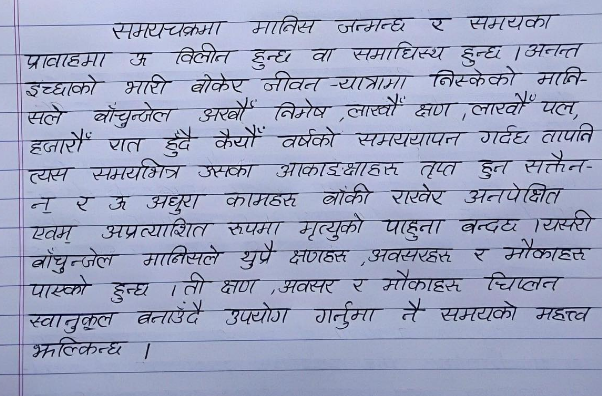 समयचक्रमा मानिस जन्मन्छ र समयका
प्रावाहमा ऊ विलीन हुन्छ वा समाधिस्थ हुन्छ । अनन्त
इच्छाको भारी बोकेर जीवन-यात्रामा निस्केको मानि-
सले बाँचुन्जेल अरबौँ निमेष, लाखौँ क्षण, लाखौँ पल,
हजारौँ रात हुँदै कैयौँ वर्षको समययापन गर्दछ तापनि
त्यस समयभित्र उसका आकाङ्क्षाहरू तृप्त हुन सक्तैन-
न् र ऊ अधुरा कामहरू बाँकी राखेर अनपेक्षित
एवम् अप्रत्याशित रुपमा मृत्युको पाहुना बन्दछ । यसरी
बाँचुन्जेल मानिसले थुप्रै क्षणहरू, अवसरहरू र मौकाहरू
पाएको हुन्छ । ती क्षण, अवसर र मौकाहरू चिप्लन
स्वानुकूल बनाउँदै उपयोग गर्नुमा नै समयको महत्त्व
झल्किन्छ ।